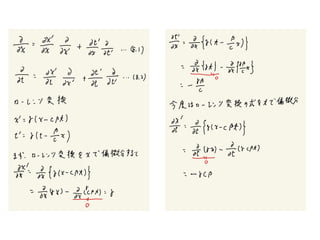 ∂/∂x = ∂x'/∂x ∂/∂x' + ∂t'/∂x ∂/∂t' … (8.1)
∂/∂t = ∂x'/∂t ∂/∂x' + ∂t'/∂t ∂/∂t' … (8.2)
ローレンツ変換
x' = γ(x - cβt)
t' = γ(t - β/c x)
まず、ローレンツ変換をxで偏微分すると
∂x'/∂x = ∂/∂x {γ(x - cβt)}
= ∂/∂x (γx) - ∂/∂x (cβt) = γ
0
∂t'/∂x = ∂/∂x {γ(t - β/c x)}
= ∂/∂x (γt) - ∂/∂x (γβ/c x)
0
= - γβ/c
今度はローレンツ変換の式をtで偏微分
∂x'/∂t = ∂/∂t {γ(x - cβt)}
= ∂/∂t (γx) - ∂/∂t (γcβt)
0
= - γcβ